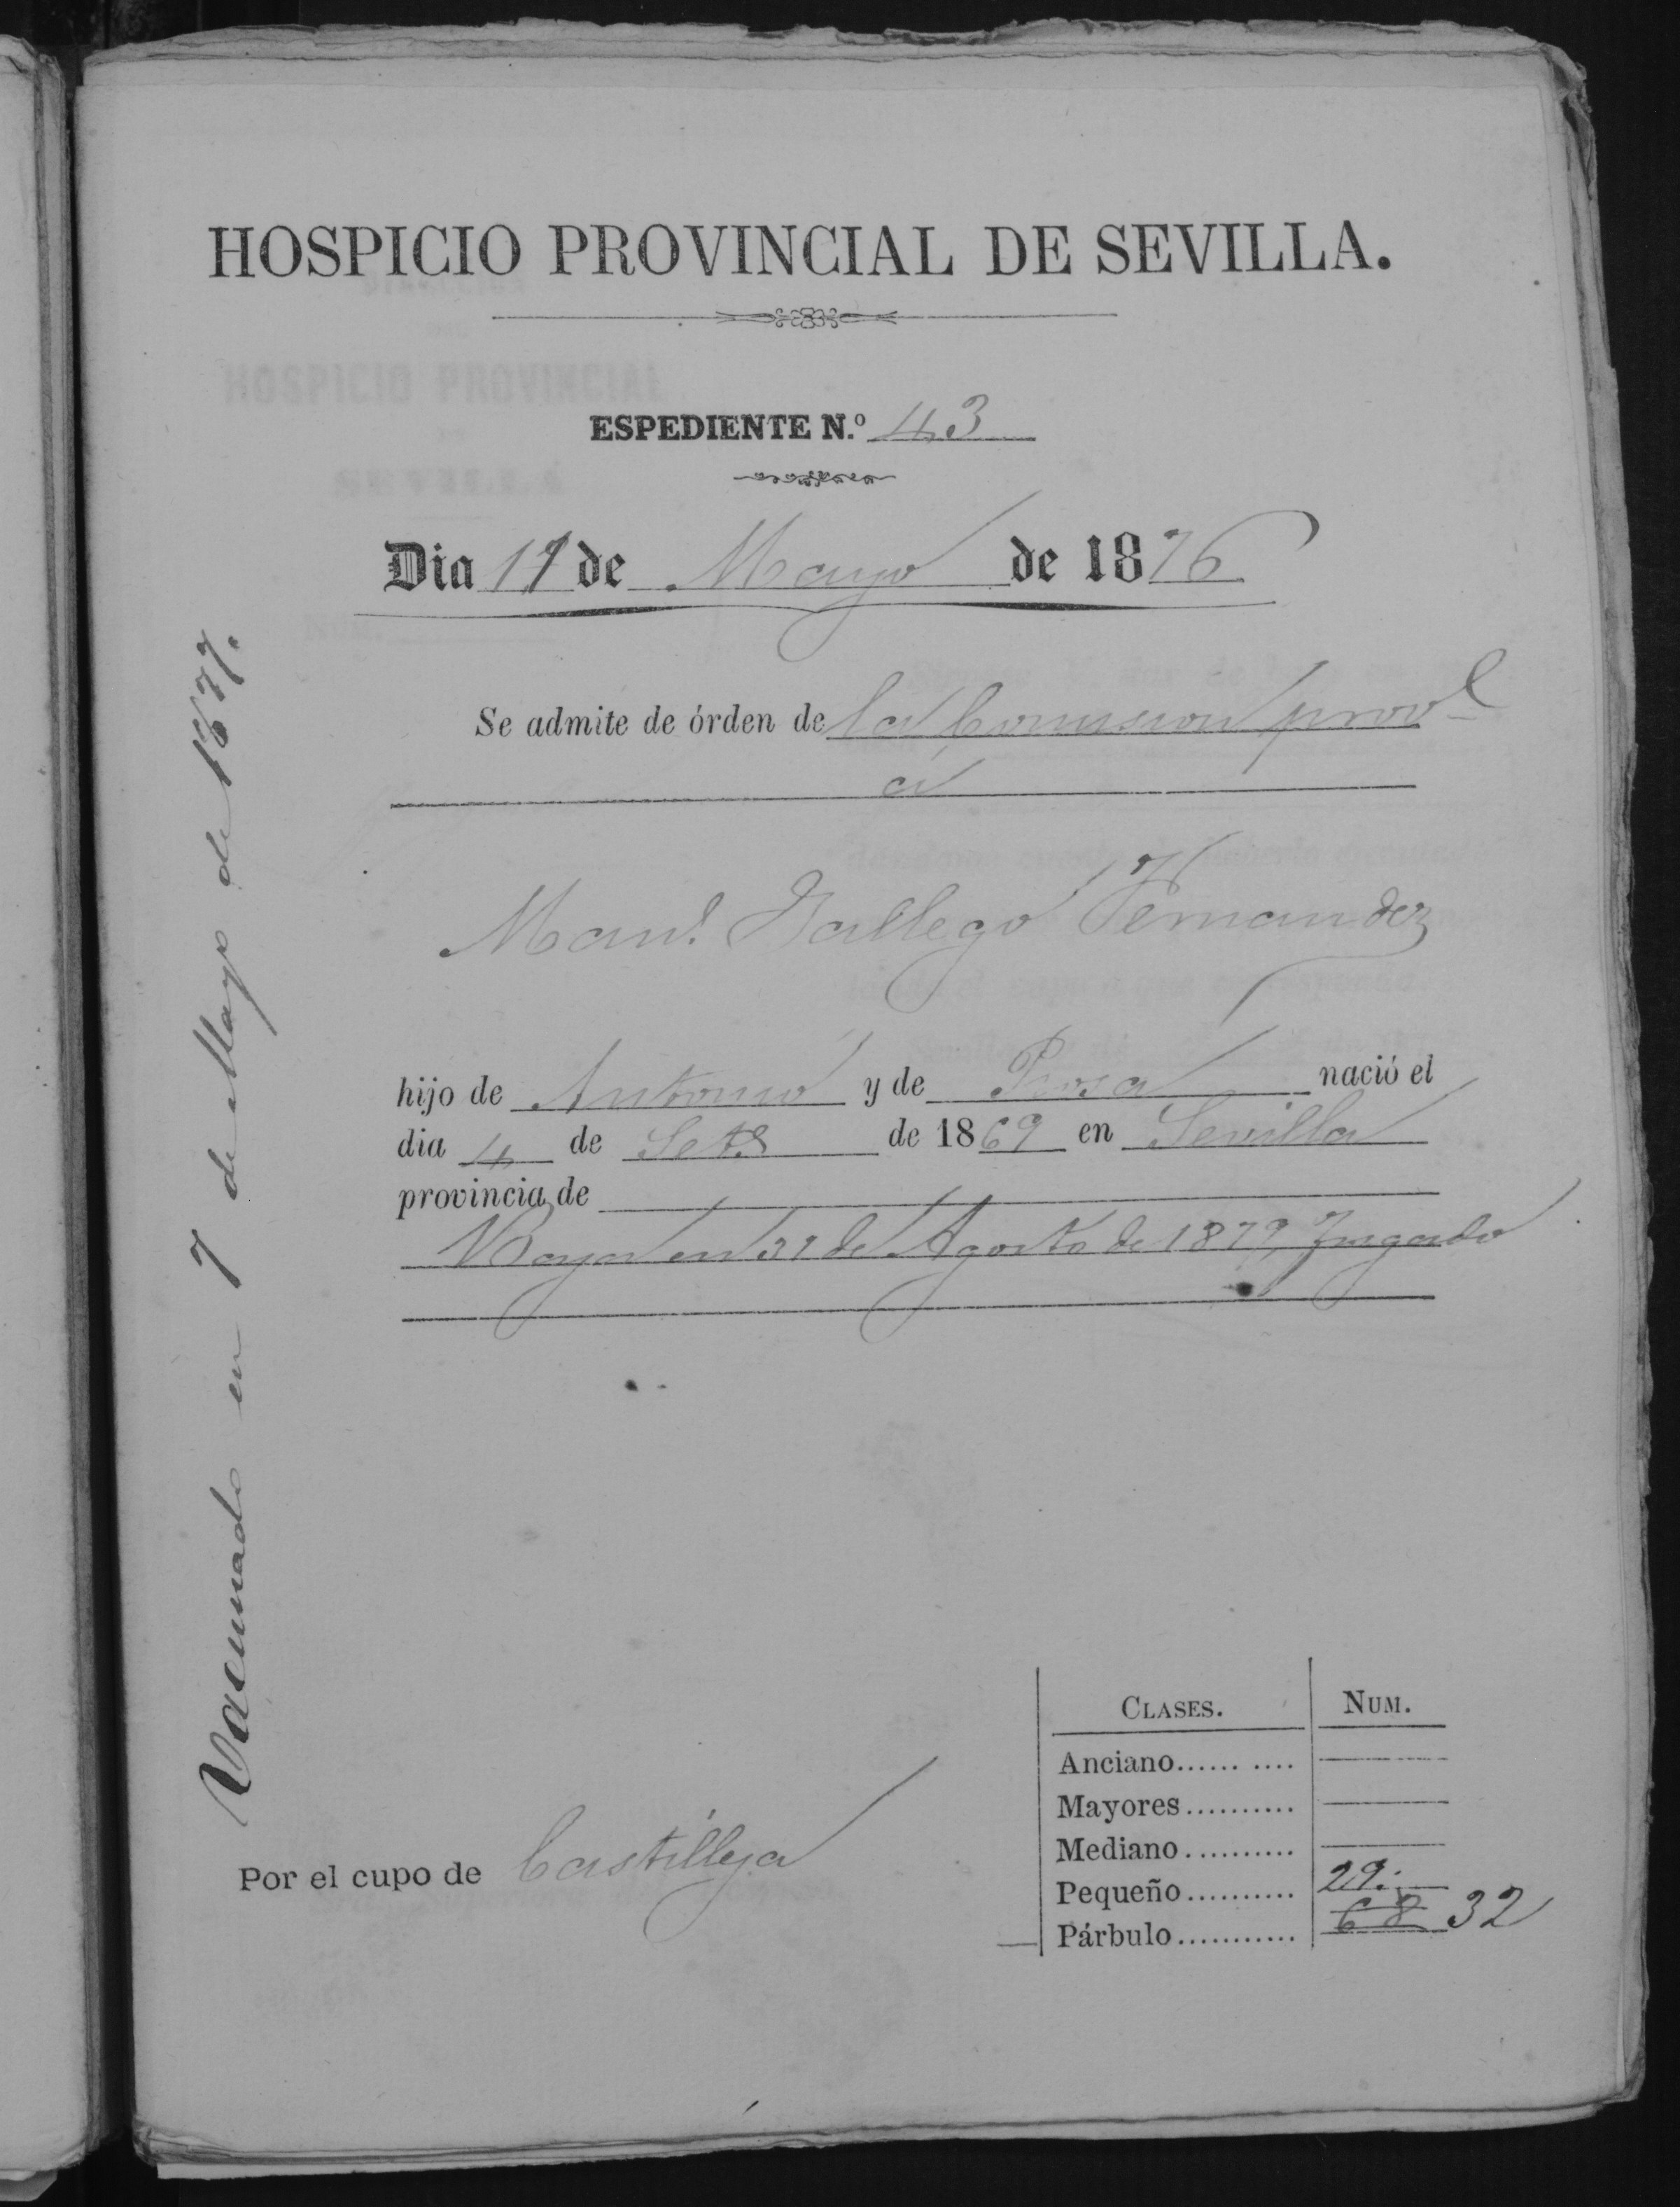 HOSPICIO PROVINCIAL DE SEVILLA.
ESPEDIENTE N.º 43
Dia 11 de Mayo de 1876
Se admite de órden de la Comision prov.l
á
Man.l Gallego Fernandez
hijo de Antonio y de Rosa nació el
dia 4 de Set.e de 1869 en Sevilla
provincia de
Baja en 31 de Agosto de 1879, Juzgado
Vacunado en 7 de Mayo de 1877.
Por el cupo de Castilleja
CLASES. NUM.
Anciano..........
Mayores..........
Mediano..........
Pequeño.......... 29.
Párbulo........... 68 32